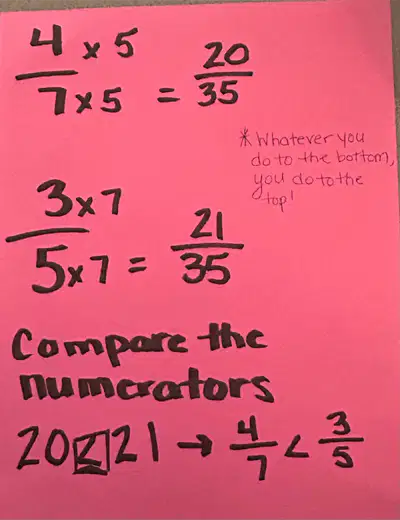 4 x 5 20
7 x 5 = 35
* Whatever you
do to the bottom,
you do to the
top!
3 x 7 21
5 x 7 = 35
Compare the
numerators
20 < 21 → 4/7 < 3/5